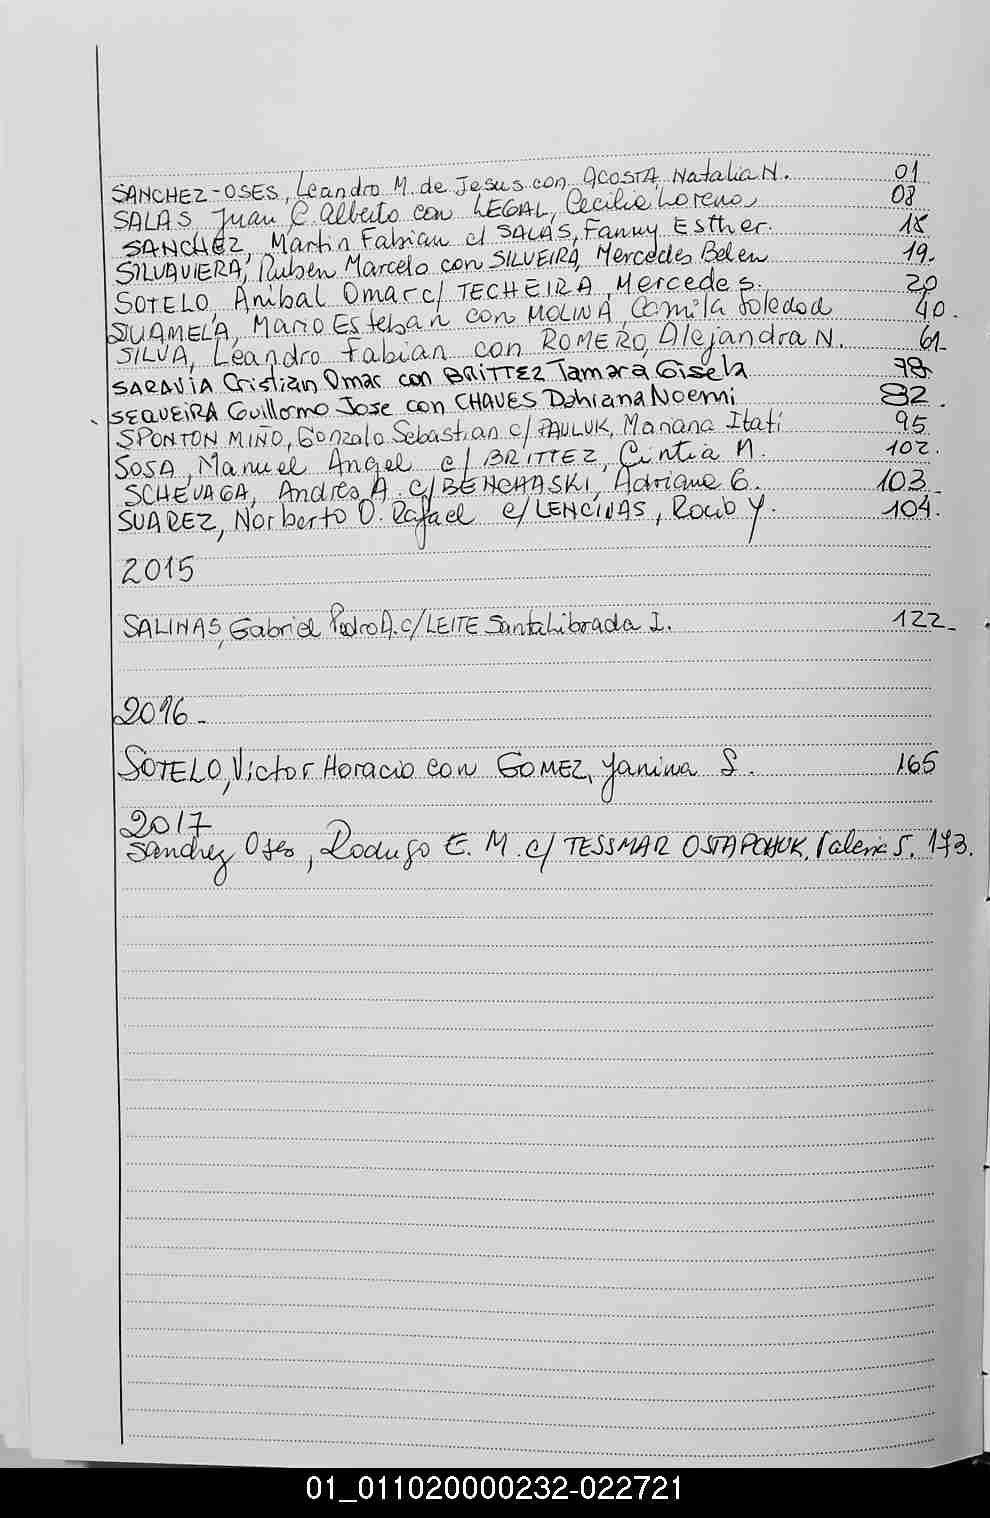 SANCHEZ-OSES, Leandro M. de Jesus con ACOSTA, Natalia N. 01
SALAS, Juan C. Alberto con LEGAL, Cecilia Lorena 08
SANCHEZ, Martin Fabian c/ SALAS, Fanny Esther. 15
SILVAVIERA, Ruben Marcelo con SILVEIRA, Mercedes Belen 19.
SOTELO, Anibal Omar c/ TECHEIRA, Mercedes. 20
SUAMELA, Mario Esteban con MOLINA, Camila Soledad 40.
SILVA, Leandro Fabian con ROMERO, Alejandra N. 61-
SARAVIA Cristian Omar con BRITTEZ Tamara Gisela 78.
SEQUEIRA Guillermo Jose con CHAVES Dahiana Noemi 82.
SPONTON MIÑO, Gonzalo Sebastian c/ PAULUK, Mariana Itatí 95
SOSA, Manuel Angel c/ BRITTEZ, Cintia M. 102.
SCHEVAGA, Andrés A. c/ BENCHASKI, Adriana G. 103-
SUAREZ, Norberto D. Rafael c/ LENCINAS, Rocio Y. 104.
2015
SALINAS, Gabriel Pedro A. c/ LEITE Santa Librada I. 122-
2016-
SOTELO, Victor Horacio con GOMEZ, Yanina S. 165
2017
Sanchez Oses, Rodrigo E. M. c/ TESSMAR OSTAPCHUK, Valeria S. 173.
01_011020000232-022721